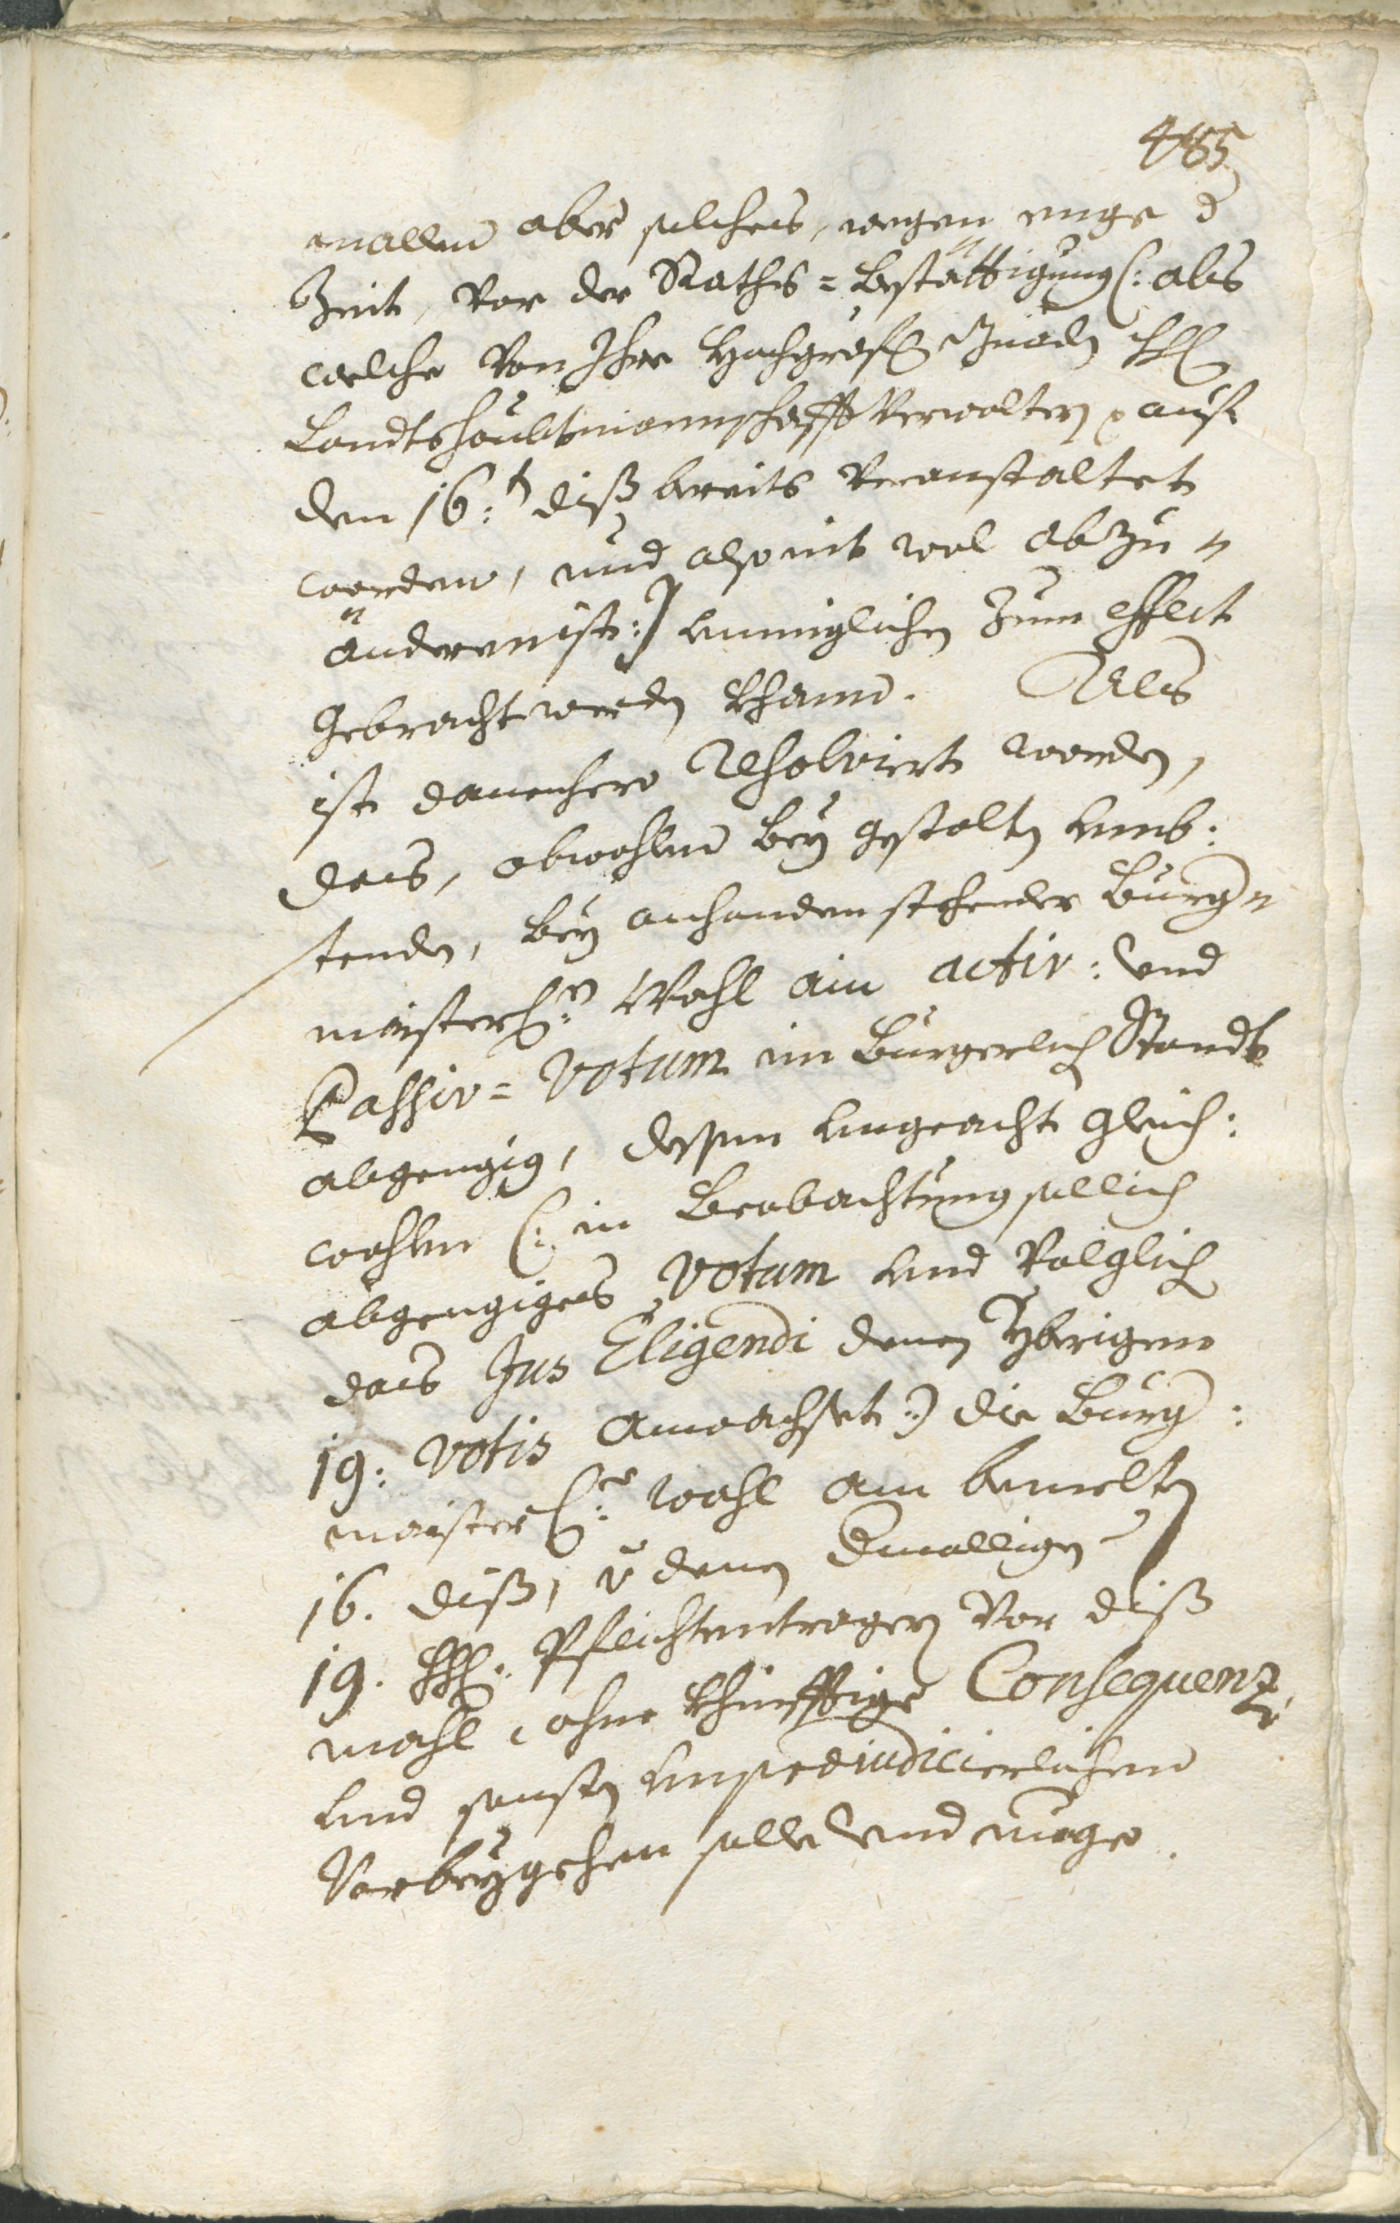 485
mallen aber solches, wegen enge d
Zeit, Vor der Raths=Bestättigung (: als
welche Von Ihro Hochgräfl Gnaden H
Landtshaubtmannschafft Verwaltern auf
den 16:t diß bereits Veranstaltet
worden, und also nit wol abzu=
änderen ist :) unmiglichen Zum effect
gebracht werden khann. Als
ist dannenhero Resolviert worden,
das, obwohlen bey gestalten Umb:
stenden, bey anhanden stehender Burg=
maisterl:n Wahl ain activ: und
Passiv=Votum im Burgerlich Standt
abgengig, dessen ungeacht gleich:
wohlen (: in Beobachtung sollich
abgengiges Votum und Volglich
das Jus Eligendi denen Yberigen
19: Votis anwachset :) die Burg:
maisterl:e wahl am bemelten
16. diß, v denen Dmalligen
19. HH: Pflichtentragern Vor diß
mahl, ohne khinfftige Consequenz,
und sonsten unpraeiudicierlichen
Vorbeygehen solle und möge.